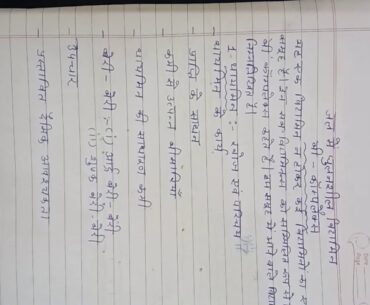 जल में घुलनशील विटामिन
बी - कॉम्पलेक्स
यह एक विटामिन न होकर कई विटामिनों का
समूह है। इन सब विटामिनों को सम्मिलित रूप से
बी कॉम्पलेक्स कहते हैं। इस समूह में आने वाले
निम्नलिखित है।
1. थायमिन :- खोज एवं परिचय
- थायमिन के कार्य
- प्राप्ति के साधन
- कमी से उत्पन्न बीमारियाँ
थायमिन की साधारण कमी
- बेरी - बेरी :- (i) आर्द्र बेरी - बेरी
(ii) शुष्क बेरी - बेरी
- उपचार
- प्रस्तावित दैनिक आवश्यकता